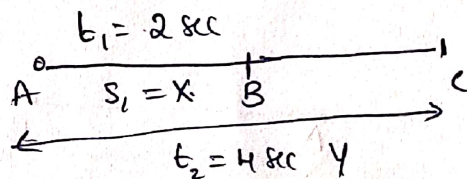 t₁ = 2 sec
A S₁ = X. B C
t₂ = 4 sec Y